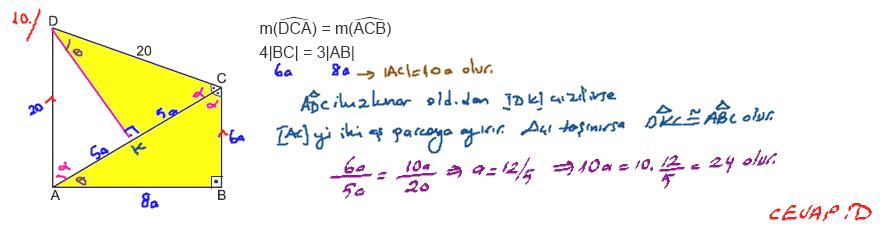 10./
D
20
θ
C
α
α
20
5a
6a
K
5a
α
θ
A
8a
B
m(DCA) = m(ACB)
4|BC| = 3|AB|
6a 8a → |AC| = 10a olur.
ADC ikizkenar old.dan [DK] çizilirse
[AC] yi iki eş parçaya ayırır. Açı taşınırsa DKC ≅ ABC olur.
6a/5a = 10a/20 ⇒ a = 12/5 ⇒ 10a = 10. 12/5 = 24 olur.
CEVAP: D